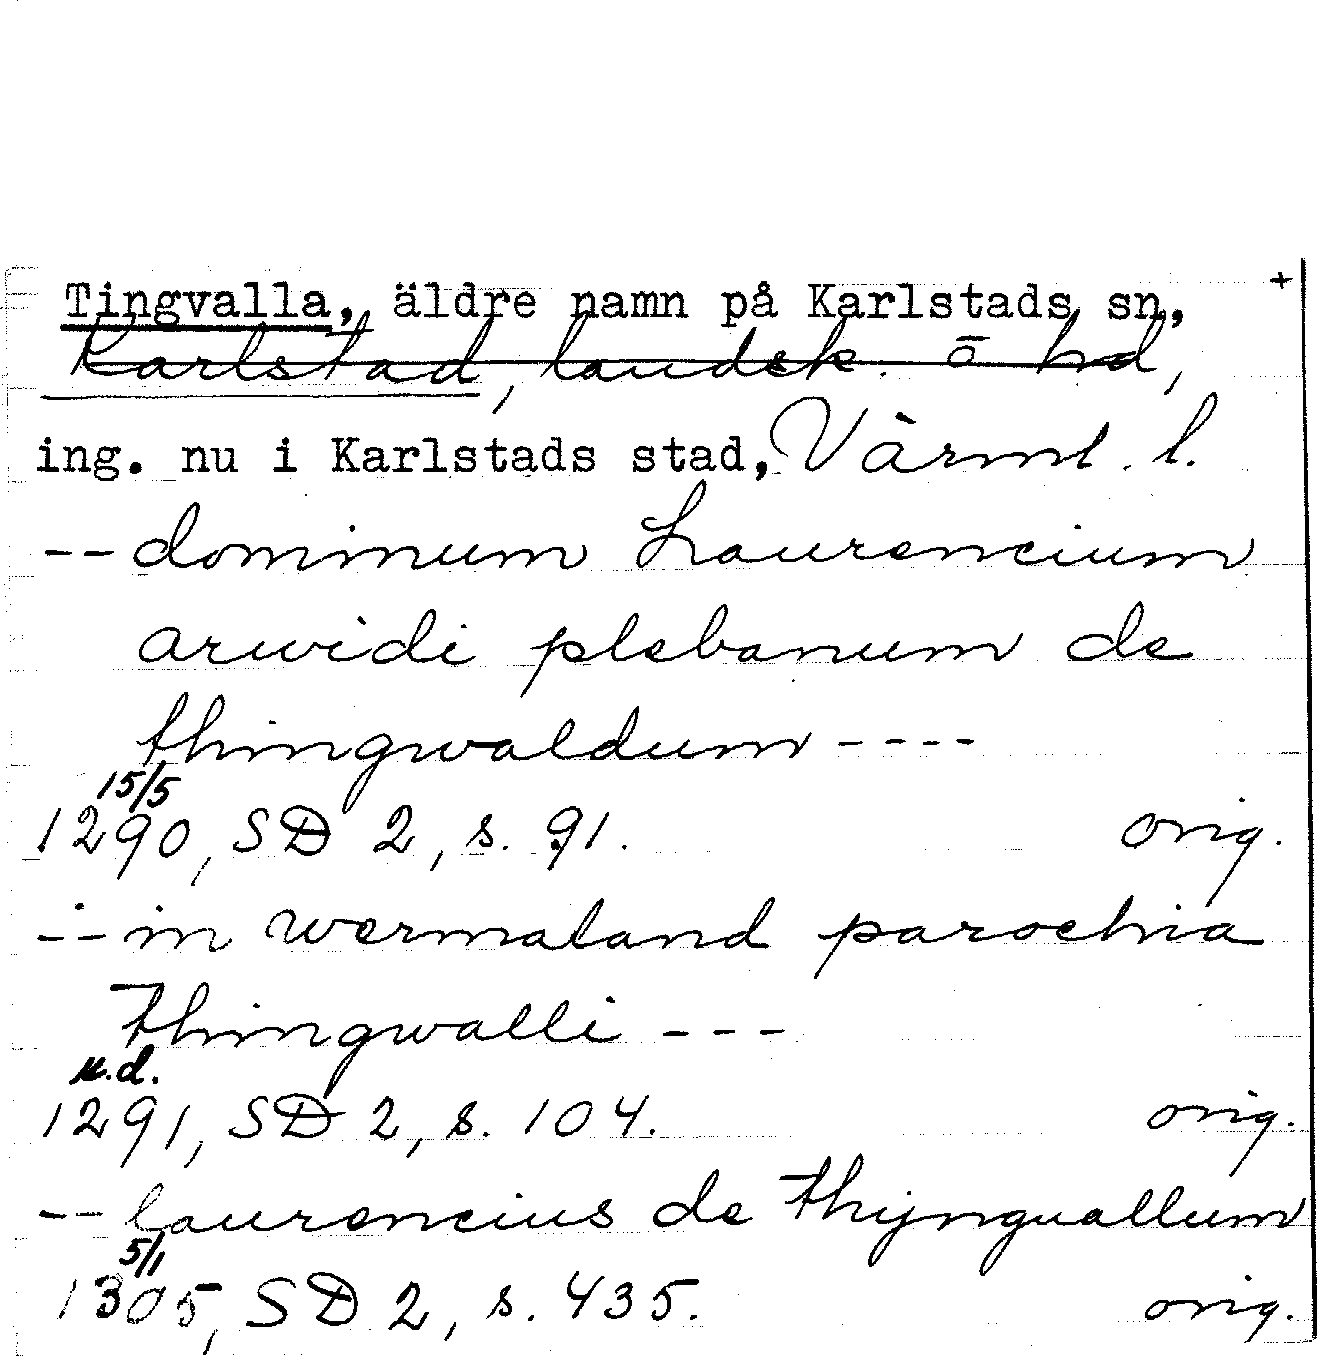 Tingvalla, äldre namn på Karlstads sn, +
Karlstad, landsk. o hd,
ing. nu i Karlstads stad, Värml. l.
-- dominum Laurencium
arwidi plebanum de
thingwaldum ----
15/5
1290, SD 2, s. 91. orig.
-- in wermaland parochia
Thingwalli ---
u.d.
1291, SD 2, s. 104. orig.
-- laurencius de Thijnguallum
5/1
1305, SD 2, s. 435. orig.